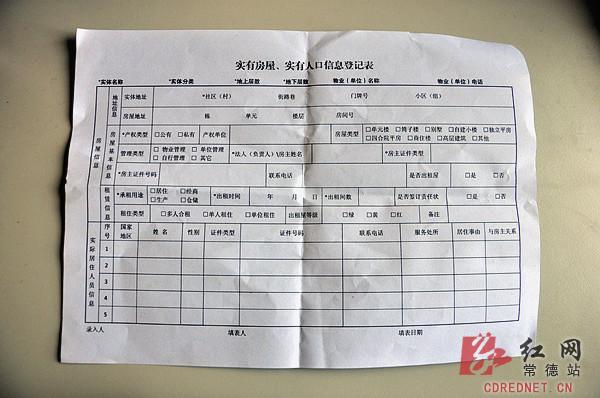 实有房屋、实有人口信息登记表
*实体名称 *实体分类 *地上层数 *地下层数 物业（单位）名称 物业（单位）电话
房屋信息
地址信息
实体地址 *社区（村） 街路巷 门牌号 小区（组）
房屋地址 栋 单元 楼层 房间号
房屋基本信息
*产权类型 □公有 □私有 产权单位 房屋类型 □单元楼 □筒子楼 □别墅 □自建小楼 □独立平房
□四合院平房 □商住楼 □高层建筑 □其他
管理类型 □物业管理 □单位管理 *法人（负责人）\房主姓名 *房主证件类型
□自行管理 □其它
*房主证件号码 联系电话 是否出租屋 □是 □否
租赁信息
*承租用途 □居住 □经商 *出租时间 年 月 日 *出租间数 是否签订责任状 □是 □否
□生产 □仓储
租住类型 □多人合租 □单人租住 □单位租住 出租屋等级 □绿 □黄 □红 备注
实际居住人员信息
序号 国家地区 姓名 性别 证件类型 证件号码 联系电话 服务处所 居住事由 与房主关系
1
2
3
4
5
录入人 填表人 填表日期
红网
常德站
CDREDNET.CN